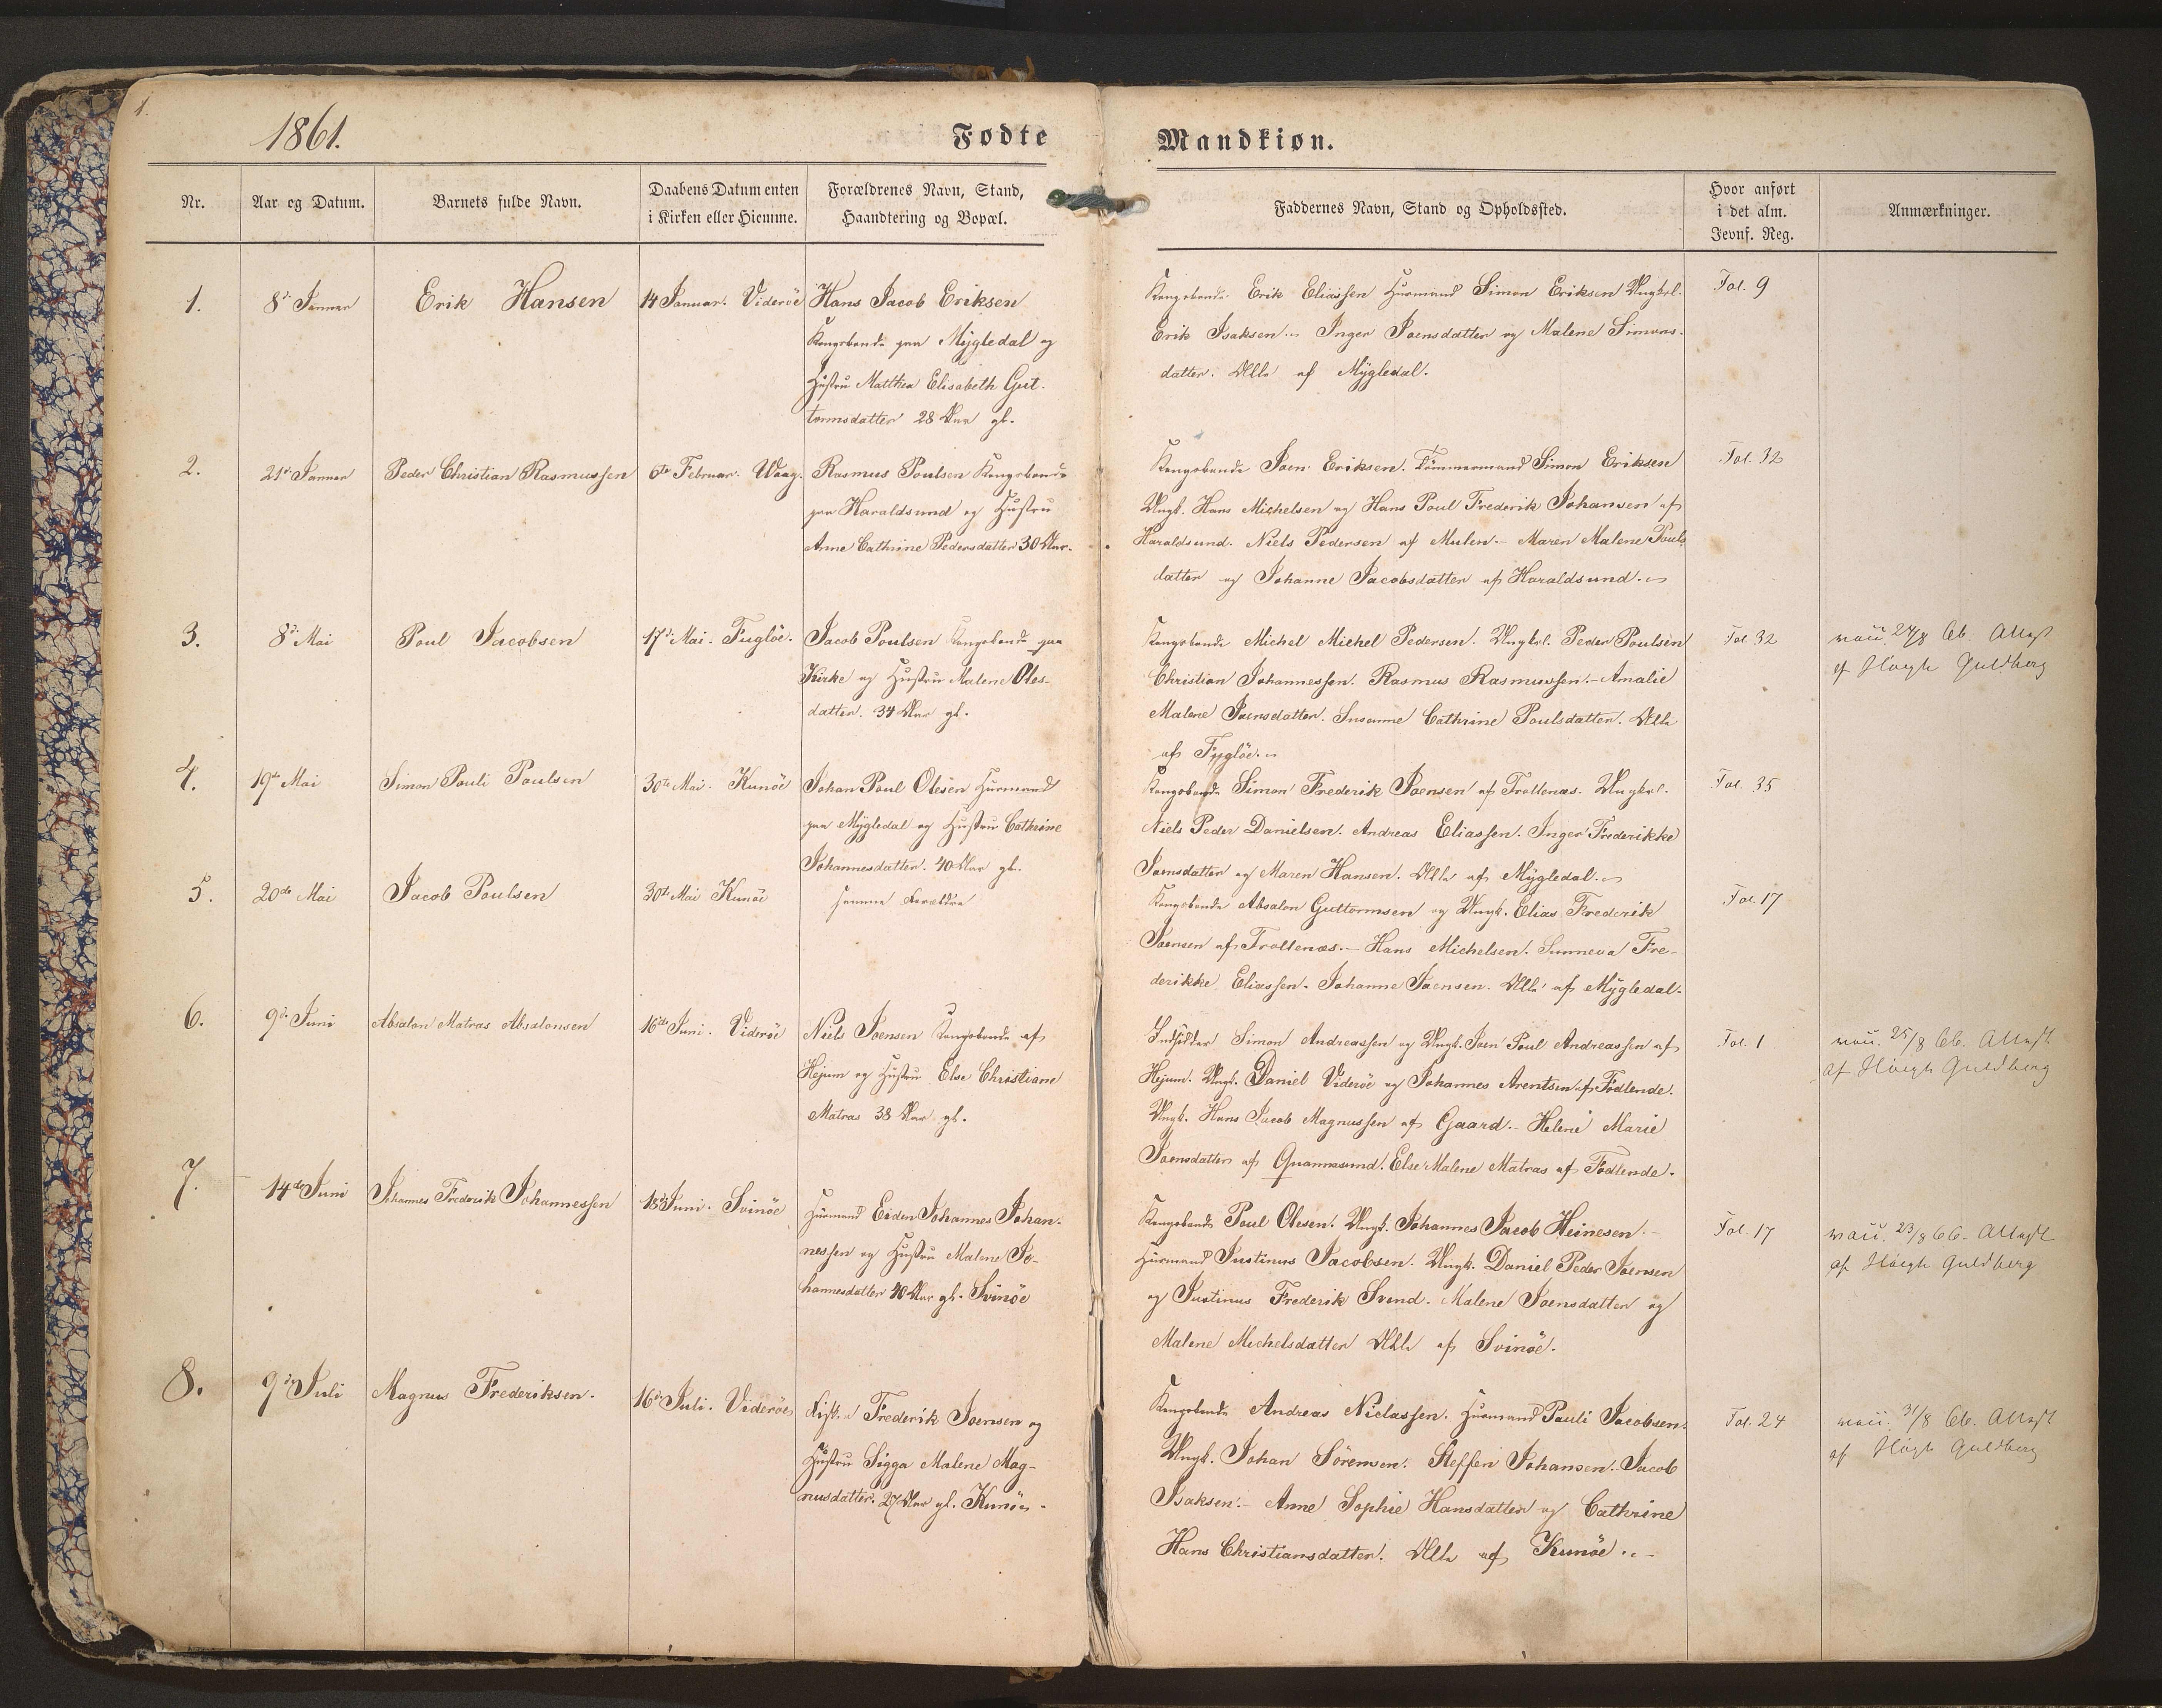 1.
1861.
Fødte
Mandkiøn.
Nr.
Aar og Datum.
Barnets fulde Navn.
Daabens Datum enten
i Kirken eller Hiemme.
Forældrenes Navn, Stand,
Haandtering og Bopæl.
Faddernes Navn, Stand og Opholdssted.
Hvor anført
i det alm.
Jevnf. Reg.
Anmærkninger.
1.
8de Januar
Erik Hansen
14 Januar. Viderøe
Hans Jacob Eriksen
Kongsbonde paa Mÿgledal og
Hustru Matthea Elisabeth Gut-
tormsdatter 28 Aar gl.
Kongsbonde Erik Eliassen Huusmand Simon Eriksen Ungkrl.
Erik Isaksen .. Inger Joensdatter og Malene Simons-
datter. Alle af Mÿgledal.
Fol. 9
2.
21de Januar
Peder Christian Rasmussen
6te Februar. Waag.
Rasmus Poulsen Kongsbonde
paa Haraldsund og Hustru
Anne Cathrine Pedersdatter 30 Aar.
Kongsbonde Joen Eriksen. Tömmermand Simon Eriksen
Ungk. Hans Michelsen og Hans Poul Frederik Johansen af
Haraldsund. Niels Pedersen af Mulen. - Maren Malene Pouls-
datter og Johanne Jacobsdatter af Haraldsund.
Fol. 32
3.
8de Mai
Poul Jacobsen
17de Mai. Fuglöe.
Jacob Poulsen Kongsbonde paa
Kirke og Hustru Malene Oles-
datter. 34 Aar gl.
Kongsbonde Michel Michel Pedersen. Ungkrl. Peder Poulsen
Christian Johannessen. Rasmus Rasmussen. - Amalie
Malene Joensdatter. Susanne Cathrine Poulsdatter. Alle
af Fuglöe.
Fol. 32
vacc. 24/8 66. Attest
af Höegh Guldberg
4.
19de Mai
Simon Pauli Poulsen
30te Mai. Kunöe
Johan Poul Olesen Huusmand
paa Mÿgledal og Hustru Cathrine
Johannesdatter. 40 Aar gl.
Kongsbonde Simon Frederik Joensen af Trollenæs. Ungkrl.
Niels Peder Danielsen. Andreas Eliassen. Inger Frederikke
Joensdatter og Maren Hansen. Alle af Mÿgledal.
Fol. 35
5.
20de Mai
Jacob Poulsen
30te Mai Kunöe
samme Forældre
Kongsbonde Absalon Guttormsen og Ungk. Elias Frederik
Joensen af Trollenæs. - Hans Michelsen. Sunneva Fre-
derikke Eliassen. Johanne Joensen. Alle af Mÿgledal.
Fol. 17
6.
9de Juni
Absalon Matras Absalonsen
16de Juni. Viderøe
Niels Joensen Kongsbonde af
Hejum og Hustru Else Christiane
Matras 38 Aar gl.
Indsidder Simon Andreassen og Ungk. Joen Poul Andreassen af
Hejum. Ungk. Daniel Viderøe og Johannes Arentsen af Fødlende.
Ungk. Hans Jacob Magnussen af Gaard. - Helene Marie
Joensdatter af Quannesund. Else Malene Matras af Fødlende.
Fol. 1
vacc. 25/8 66. Attest
af Höegh Guldberg
7.
14de Juni
Johannes Frederik Johannessen
18de Juni. Svinöe
Huusmand Eiden Johannes Johan-
nessen og Hustru Malene Jo-
hannesdatter 40 Aar gl. Svinöe
Kongsbonde Poul Olesen. Ungk. Johannes Jacob Heinesen. -
Huusmand Justinus Jacobsen. Ungk. Daniel Peder Joensen
og Justinus Frederik Svend. Malene Joensdatter og
Malene Michelsdatter Alle af Svinöe.
Fol. 17
vacc. 23/8 66. Attest
af Höegh Guldberg
8.
9de Juli
Magnus Frederiksen.
16de Juli. Viderøe
Frederik Joensen og
Hustru Sigga Malene Mag-
nusdatter. 27 Aar gl. Kunöe.
Kongsbonde Andreas Niclassen. Huusmand Pauli Jacobsen.
Ungk. Johan Sörensen. Steffen Johansen. Jacob
Isaksen. - Anne Sophie Hansdatter og Cathrine
Hans Christiansdatter. Alle af Kunöe.
Fol. 24
vacc. 31/8 66. Attest
af Höegh Guldberg